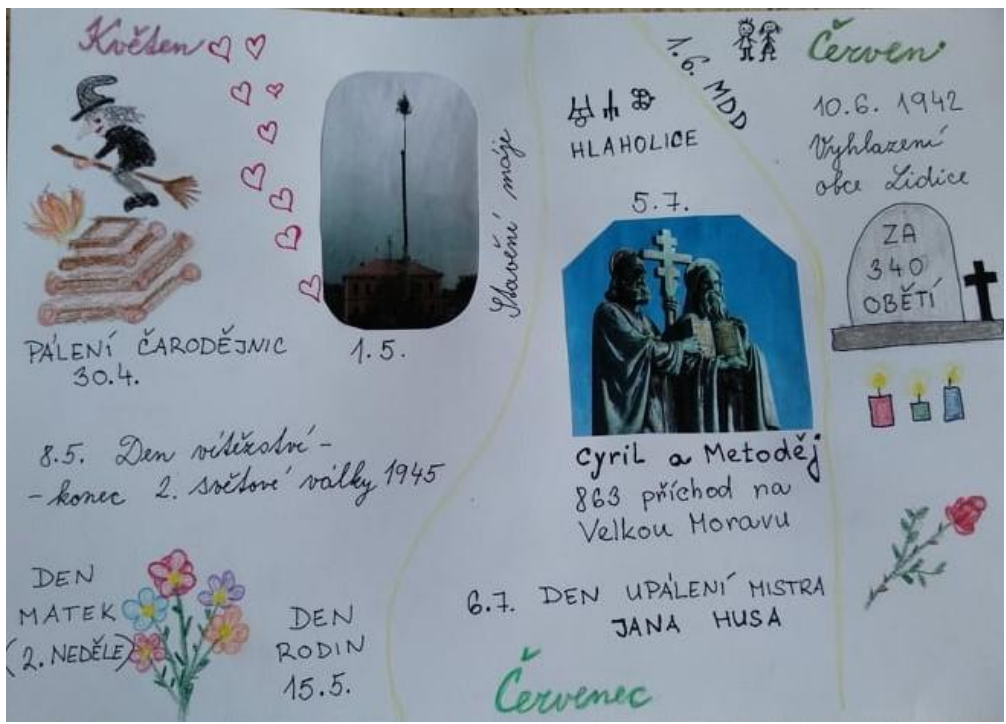 Květen
PÁLENÍ ČARODĚJNIC
30.4.
1.5.
Stavění máje
8.5. Den vítězství -
- konec 2. světové války 1945
DEN
MATEK
(2. NEDĚLE)
DEN
RODIN
15.5.
HLAHOLICE
5.7.
Cyril a Metoděj
863 příchod na
Velkou Moravu
6.7. DEN UPÁLENÍ MISTRA
JANA HUSA
Červenec
1.6. MDD
Červen
10.6. 1942
Vyhlazení
obce Lidice
ZA
340
OBĚTÍ